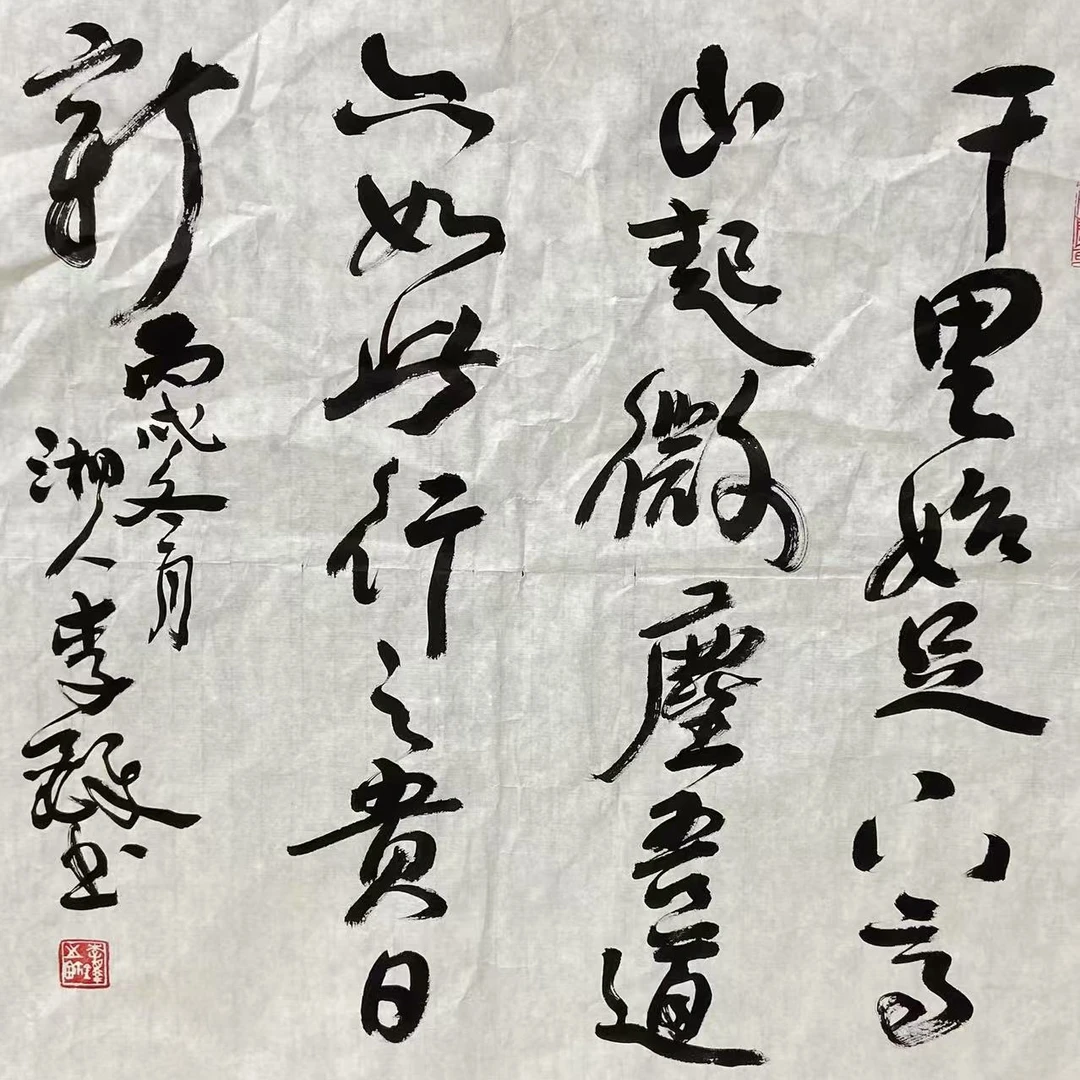 千里始足下高
山起微塵吾道
亦如此行之貴日
新
丙戌冬月
湘人李 书